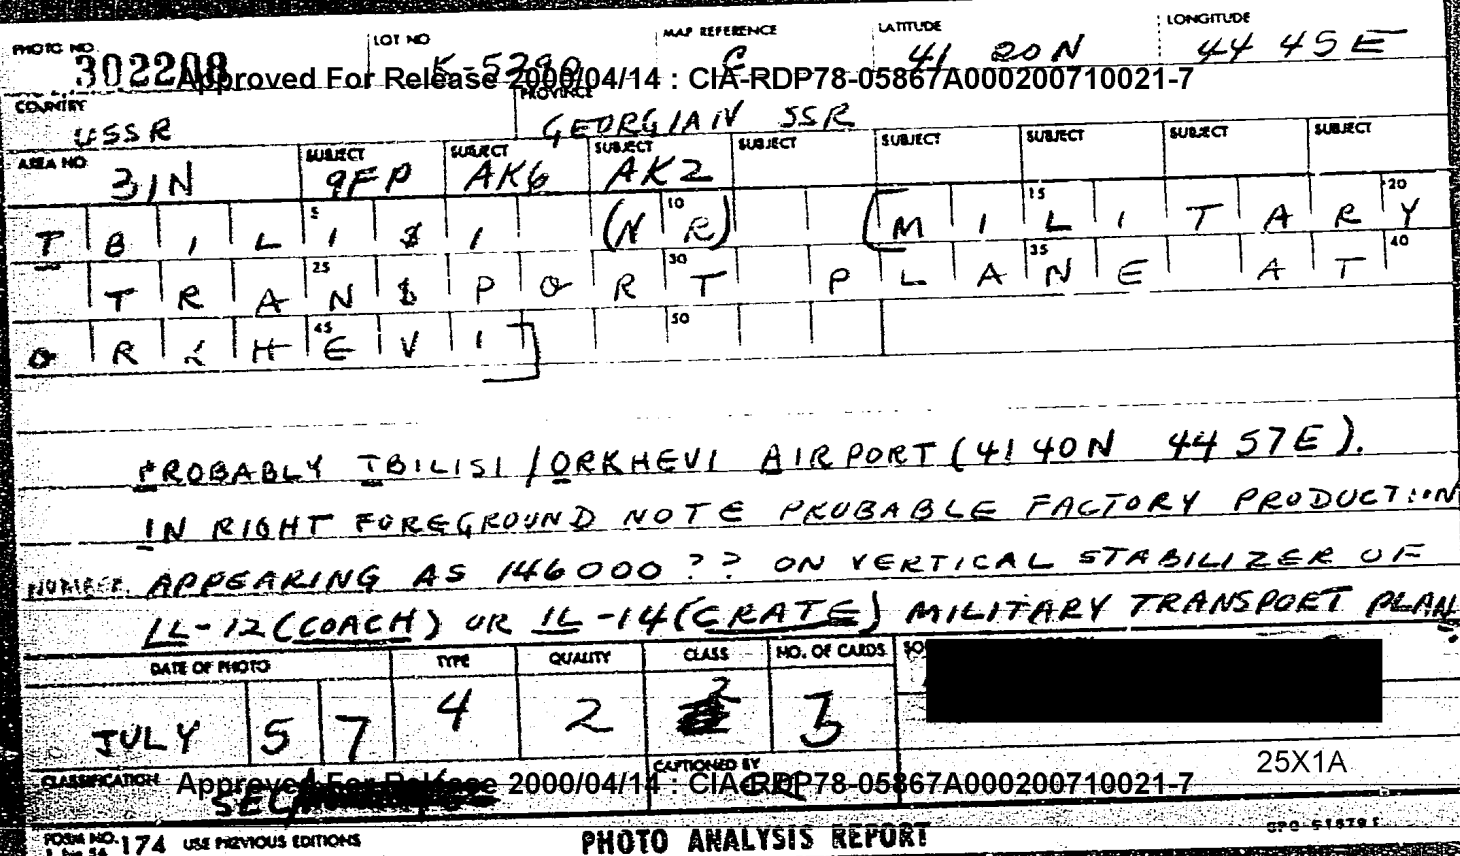 PHOTO NO. LOT NO MAP REFERENCE LATITUDE LONGITUDE
302208 K-5290 C 41 20N 44 45E
Approved For Release 2000/04/14 : CIA-RDP78-05867A000200710021-7
COUNTRY PROVINCE
USSR GEORGIAN SSR
AREA NO. SUBJECT SUBJECT SUBJECT SUBJECT SUBJECT SUBJECT SUBJECT SUBJECT
31N 9FP AK6 AK2
5 10 15 20
TBILISI (NR) [MILITARY
25 30 35 40
TRANSPORT PLANE AT
45 50
ORKHEVI]
PROBABLY TBILISI/ORKHEVI AIRPORT (41 40N 44 57E).
IN RIGHT FOREGROUND NOTE PROBABLE FACTORY PRODUCTION
NUMBER APPEARING AS 146000?? ON VERTICAL STABILIZER OF
IL-12 (COACH) OR IL-14 (CRATE) MILITARY TRANSPORT PLANE.
DATE OF PHOTO TYPE QUALITY CLASS NO. OF CARDS
JULY 57 4 2 2 3
25X1A
CLASSIFICATION CAPTIONED BY
Approved For Release 2000/04/14 : CIA-RDP78-05867A000200710021-7
FORM NO. 174 USE PREVIOUS EDITIONS PHOTO ANALYSIS REPORT